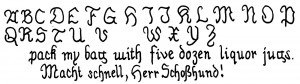 ABCDEFGHIJKLMNOP
QRSTUVWXYZ
pack my bag with five dozen liquor jugs.
Macht schnell, Herr Schoßhund!